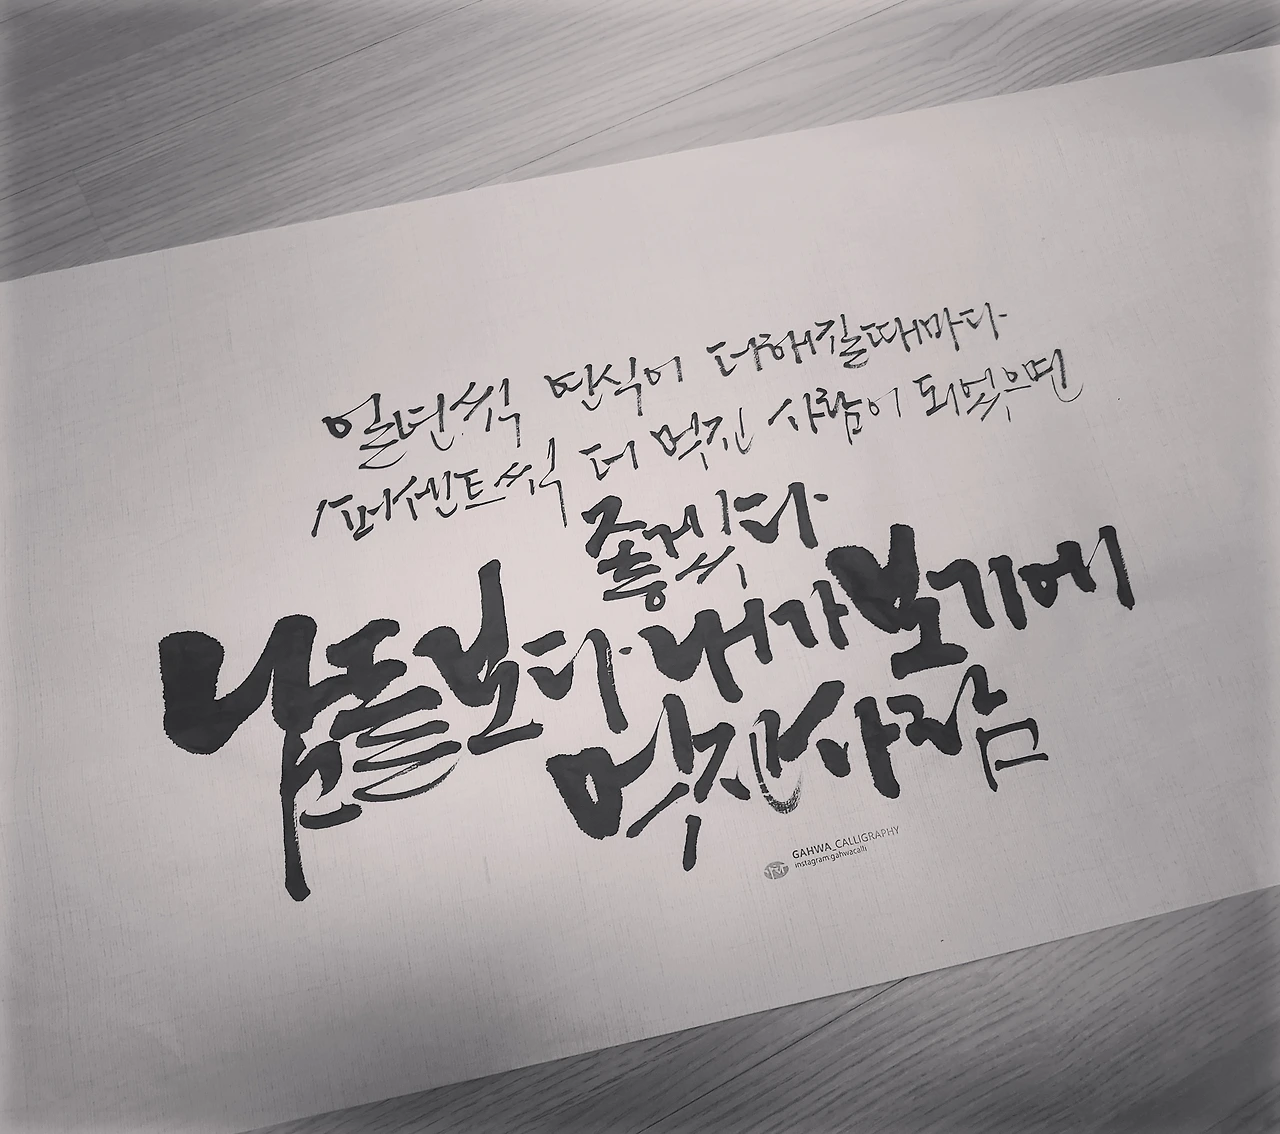 일년씩 연식이 더해질때마다
1퍼센트씩 더 멋진 사람이 되었으면
좋겠다
남들보다 내가 보기에
멋진사람
GAHWA_CALLIGRAPHY
instagram:gahwacalli